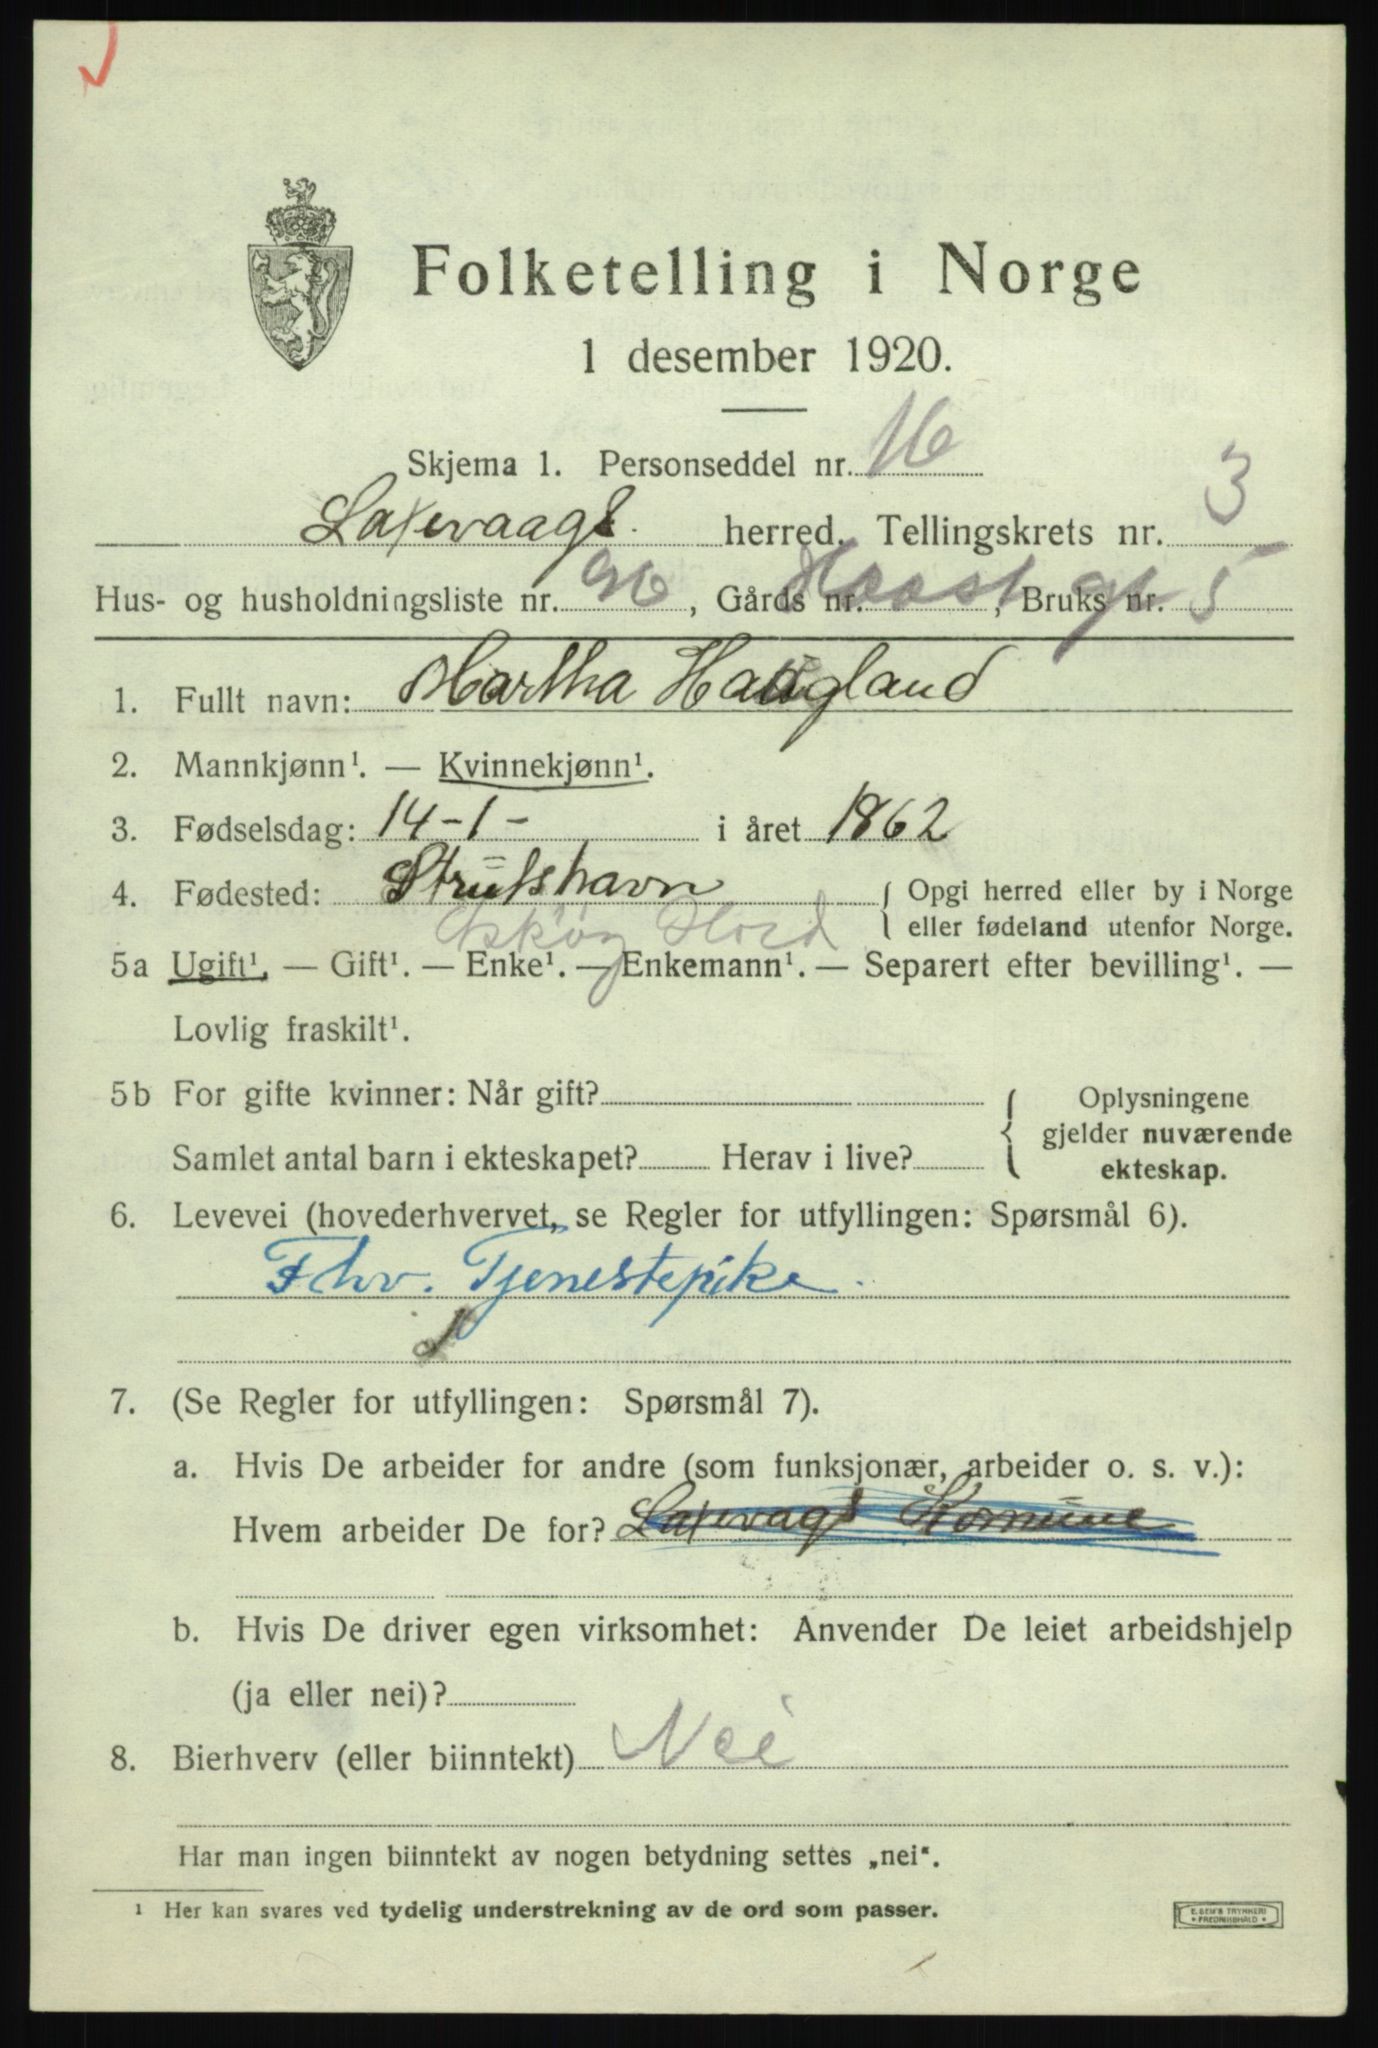 Folketelling i Norge
1 desember 1920.
Skjema 1. Personseddel nr. 16
Laxevaags herred. Tellingskrets nr. 3
Hus- og husholdningsliste nr. 96, Gårds nr. , Bruks nr. 5
1. Fullt navn: Martha Haugland
2. Mannkjønn¹. — Kvinnekjønn¹.
3. Fødselsdag: 14-1- i året 1862
4. Fødested: Strutshavn { Opgi herred eller by i Norge
Askøy Hord eller fødeland utenfor Norge.
5a Ugift¹. — Gift¹. — Enke¹. — Enkemann¹. — Separert efter bevilling¹. —
Lovlig fraskilt¹.
5b For gifte kvinner: Når gift? { Oplysningene
gjelder nuværende
Samlet antal barn i ekteskapet? Herav i live? ekteskap.
6. Levevei (hovederhvervet, se Regler for utfyllingen: Spørsmål 6).
Fhv. Tjenestepike.
7. (Se Regler for utfyllingen: Spørsmål 7).
a. Hvis De arbeider for andre (som funksjonær, arbeider o. s. v.):
Hvem arbeider De for? Laxevags Komune
b. Hvis De driver egen virksomhet: Anvender De leiet arbeidshjelp
(ja eller nei)?
8. Bierhverv (eller biinntekt) Nei
Har man ingen biinntekt av nogen betydning settes „nei“.
¹ Her kan svares ved tydelig understrekning av de ord som passer.
E. SEM'S TRYKKERI
FREDRIKSHALD